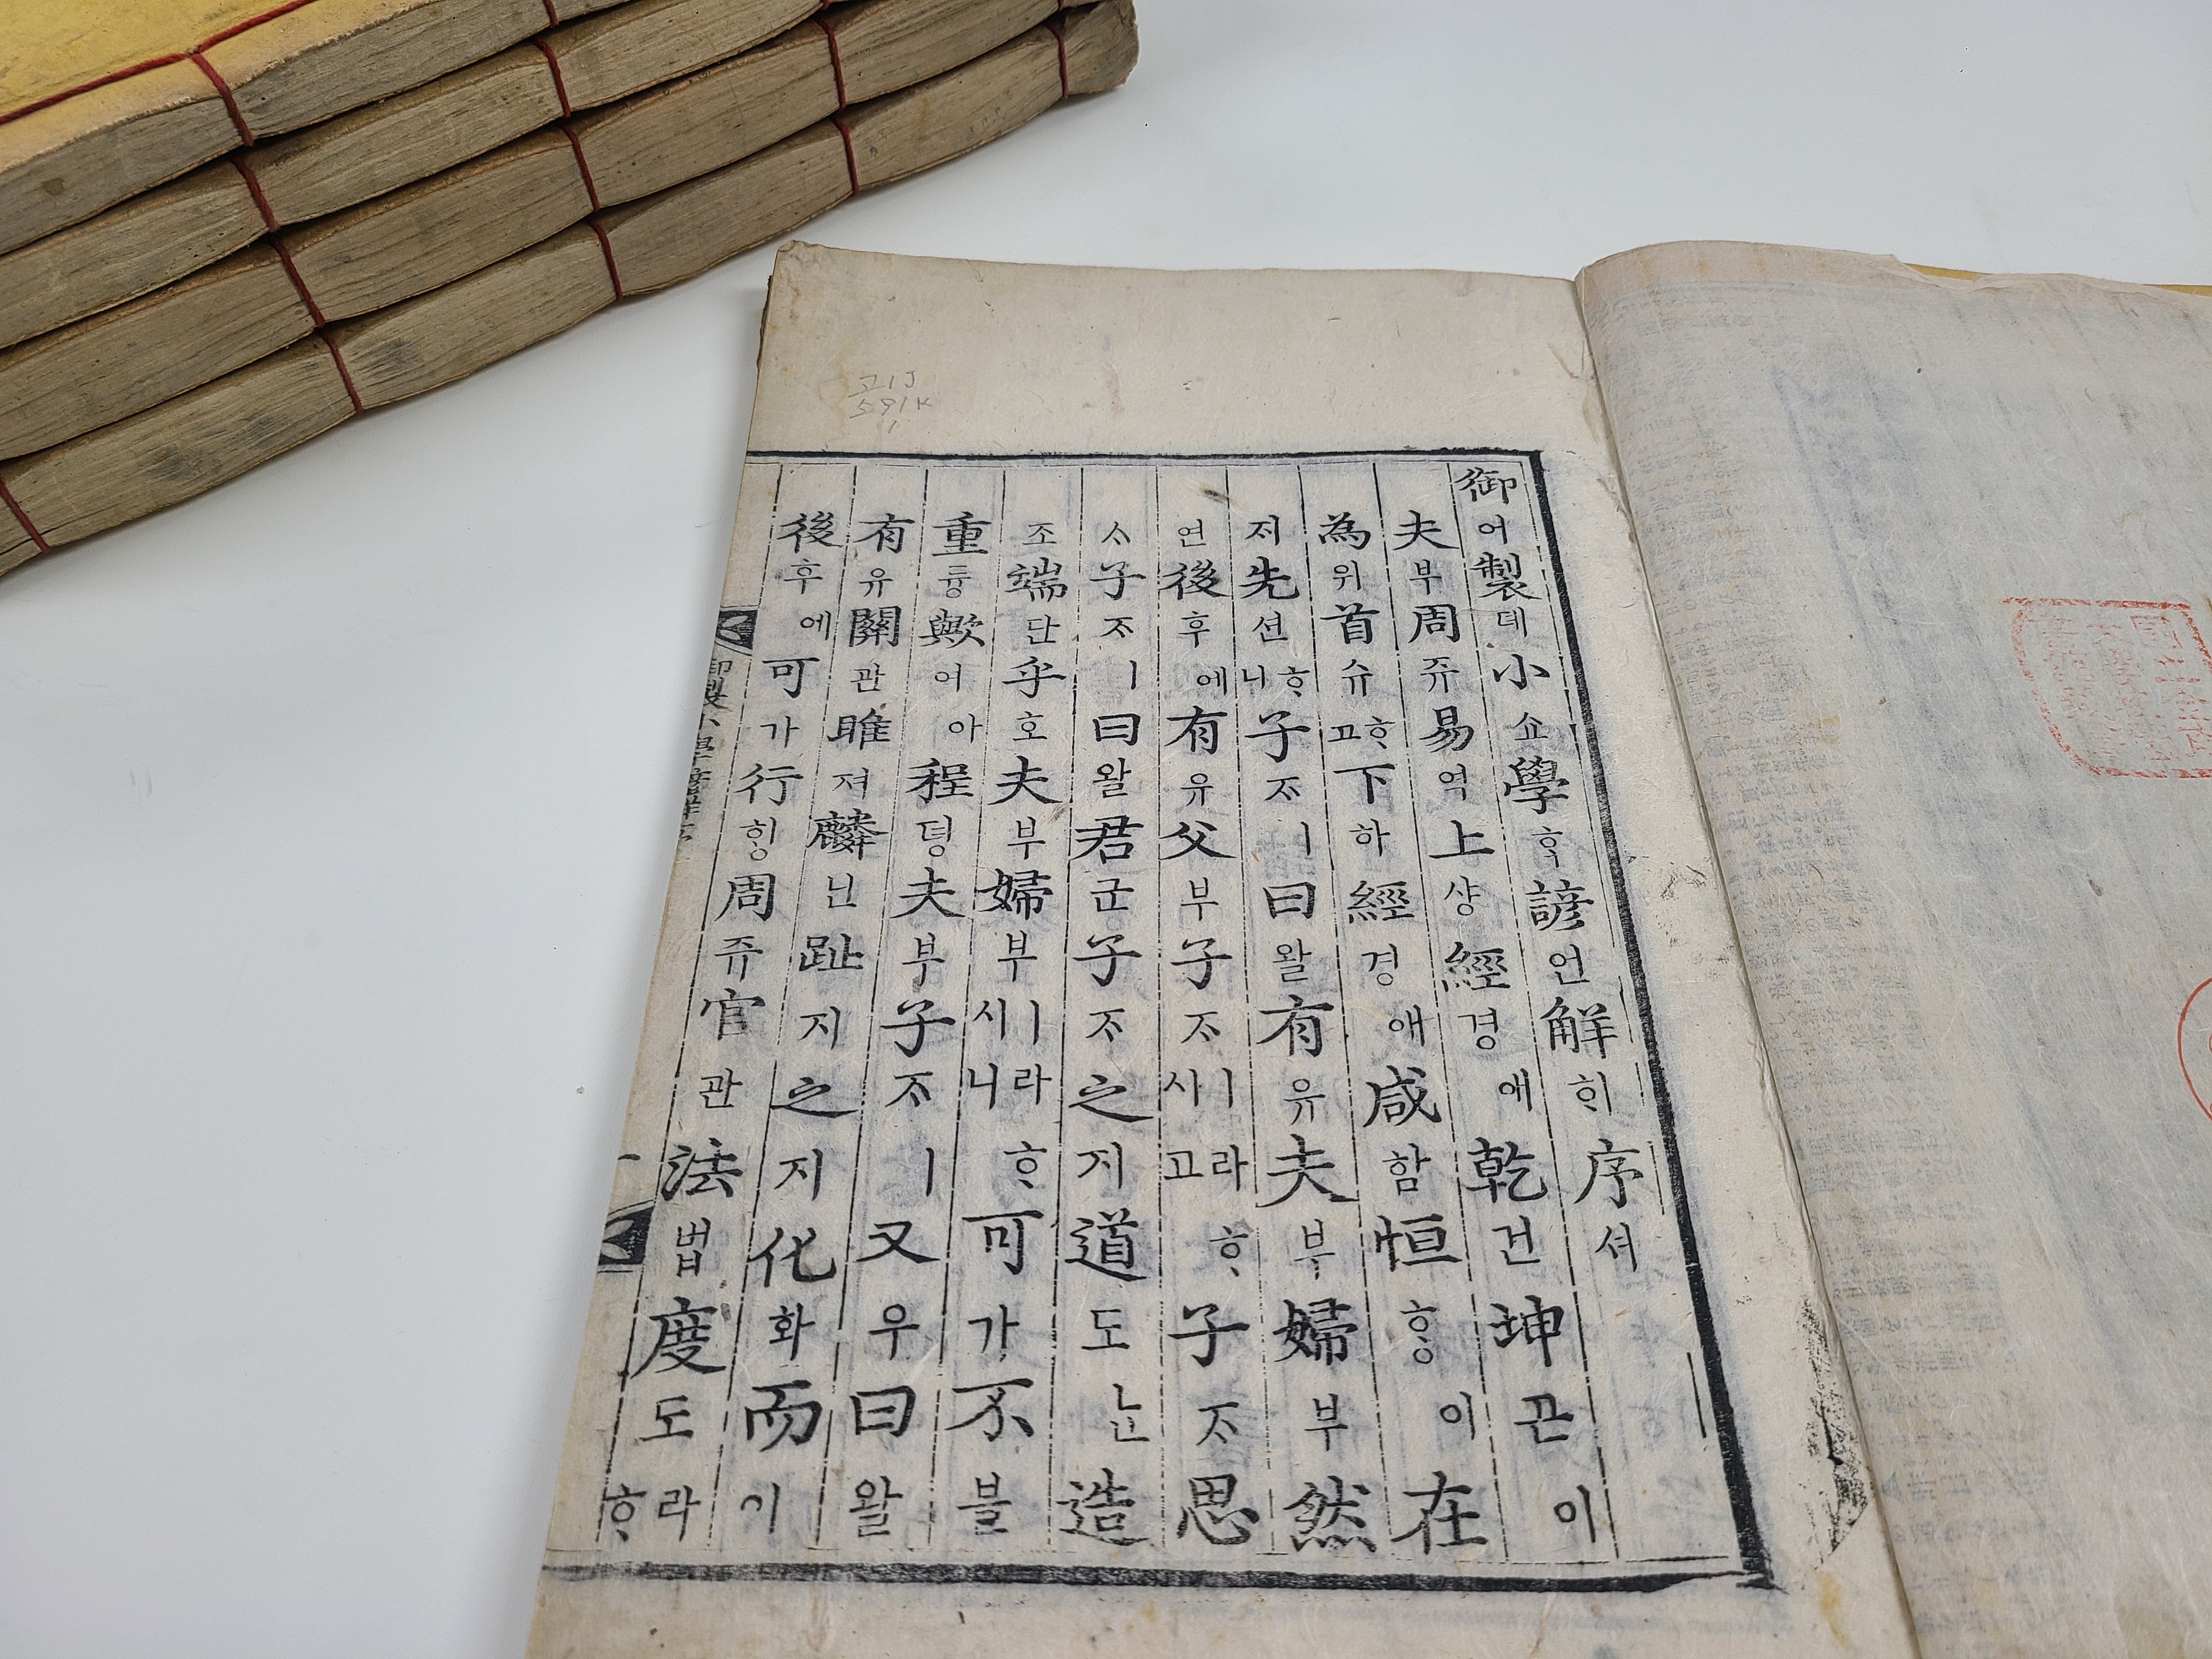 고1J
591K
1
御어製뎨小쇼學ᄒᆞᆨ諺언解ᄒᆡ序셔
夫부周쥬易역上샹經경애乾건坤곤이
為위首슈ᄒᆞ고下하經경애咸함恒ᄒᆞᆼ이在
ᄌᆡ先션ᄒᆞ니子ᄌᆞㅣ曰왈有유夫부婦부然
연後후에有유父부子ᄌᆞㅣ라ᄒᆞ시고子ᄌᆞ思
ᄉᆞ子ᄌᆞㅣ曰왈君군子ᄌᆞ之지道도ᄂᆞᆫ造
조端단乎호夫부婦부ㅣ라ᄒᆞ시니可가不블
重듕歟어아程뎡夫부子ᄌᆞㅣ又우曰왈
有유關관雎져麟닌趾지之지化화而이
後후에可가行ᄒᆡᆼ周쥬官관法법度도라ᄒᆞ
御製小學諺解序
一